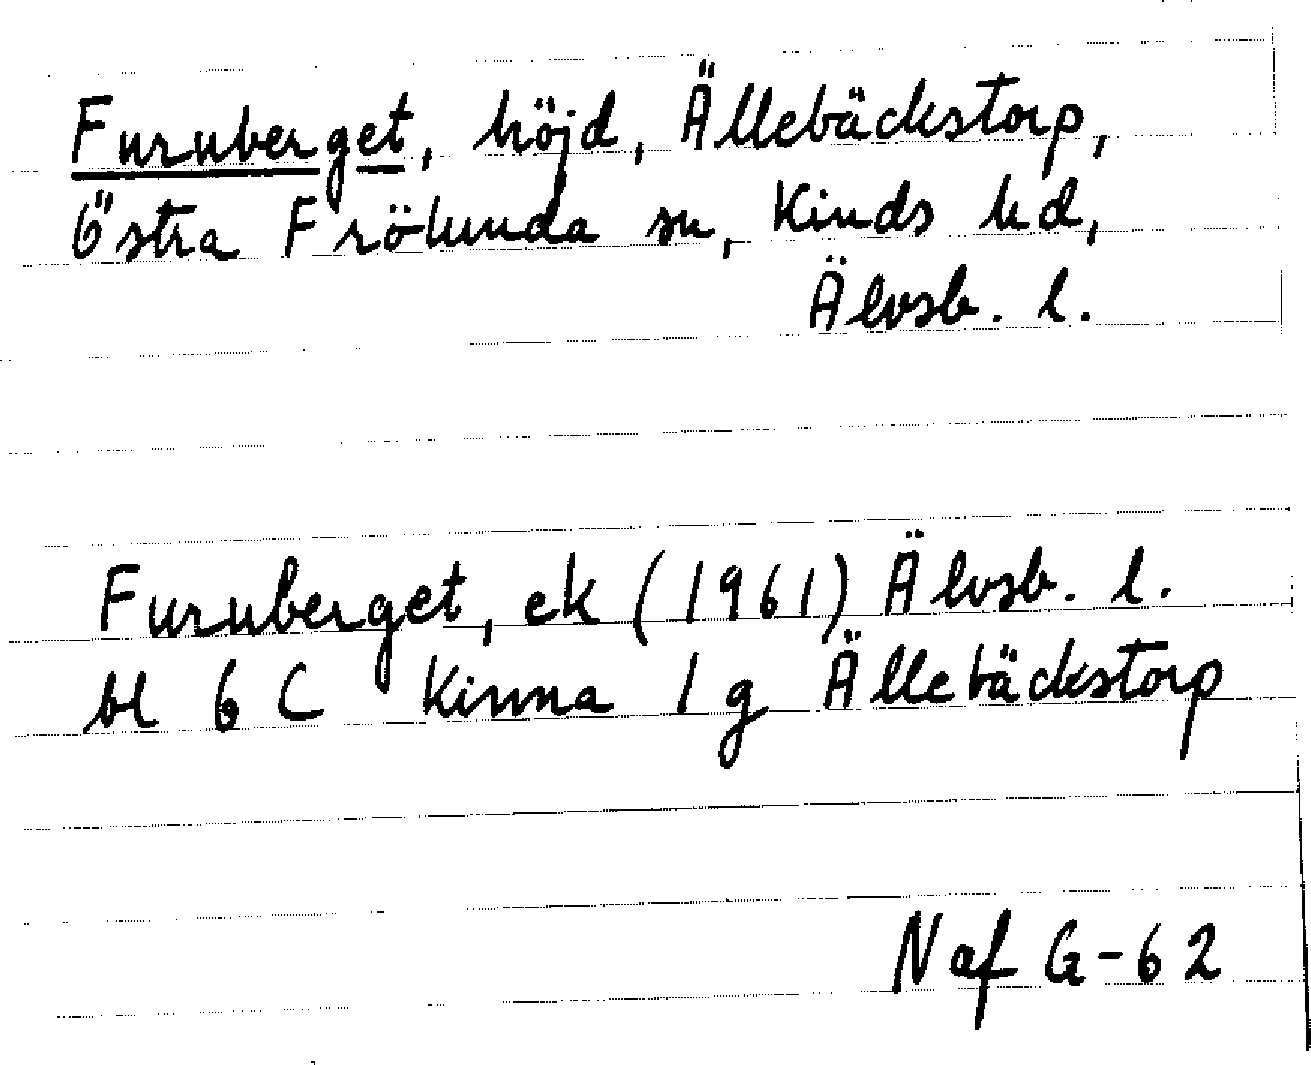 Furuberget, höjd, Ällebäckstorp,
Östra Frölunda sn, Kinds hd,
Älvsb. l.
Furuberget, ek (1961) Älvsb. l.
bl 6 C Kinna 1 g Ällebäckstorp
Naf G-62